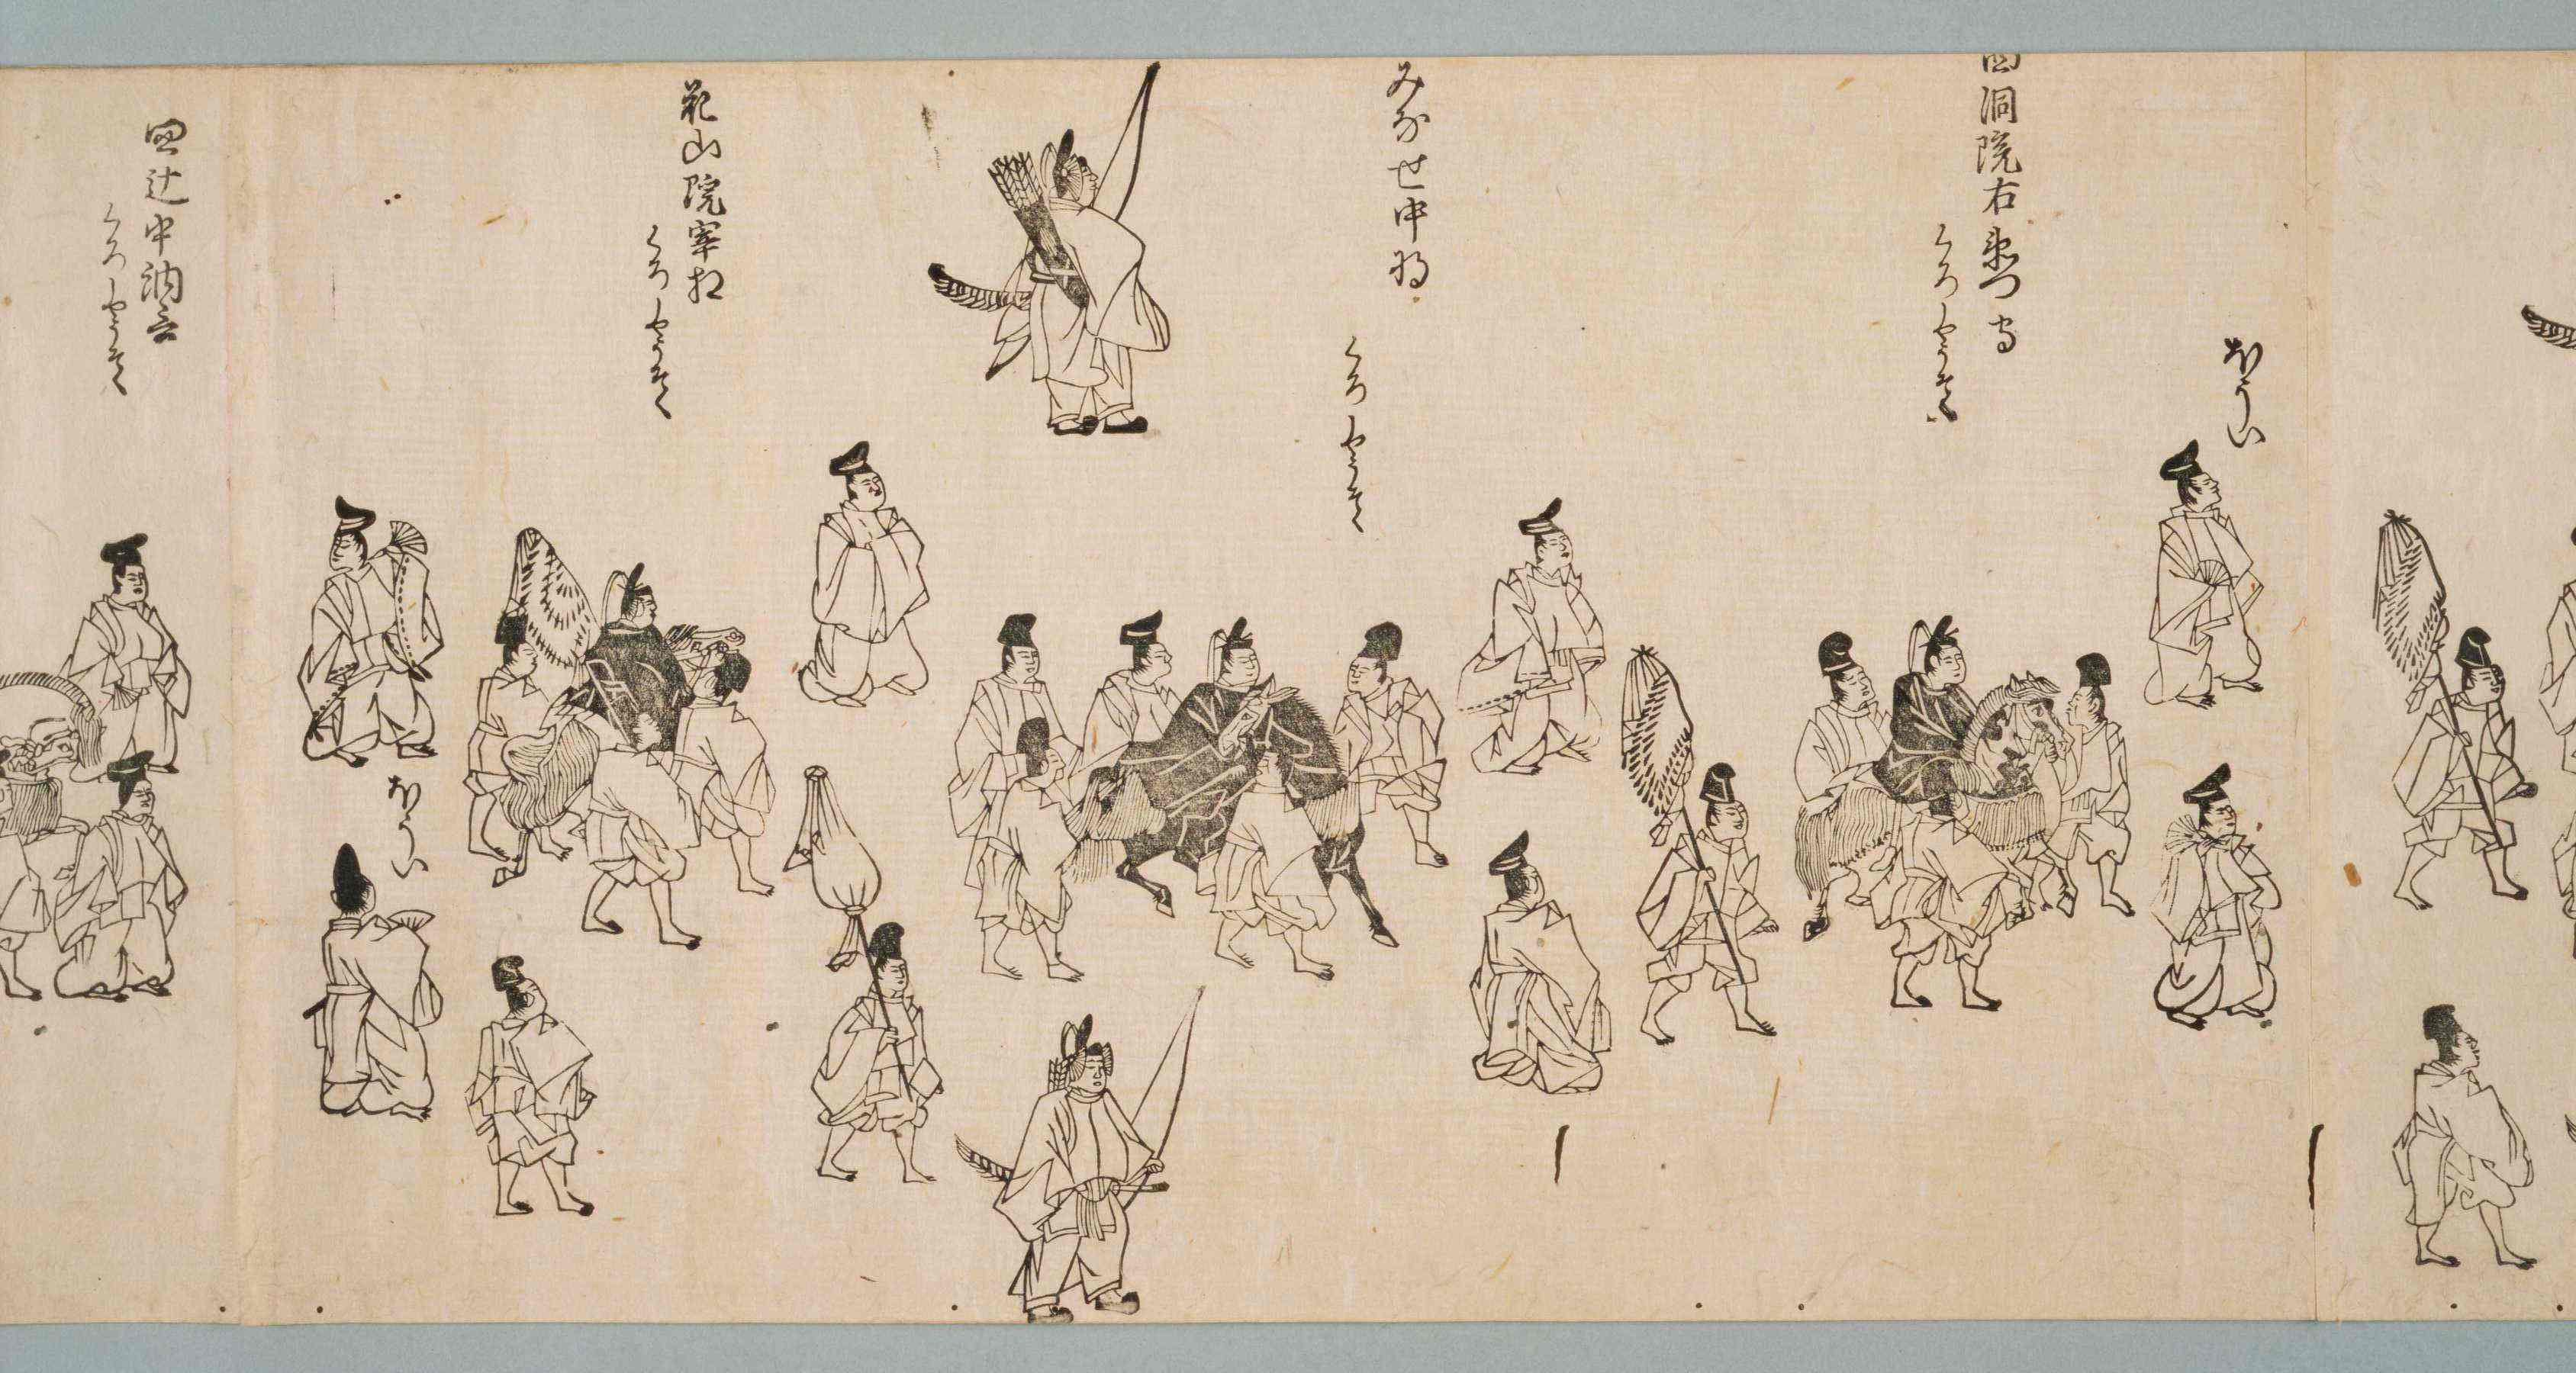 ほうい
西洞院右衛門守
くろしやうそく
みなせ中将
くろしやうそく
花山院宰相
くろしやうそく
ほうい
四辻中納言
くろしやうそく